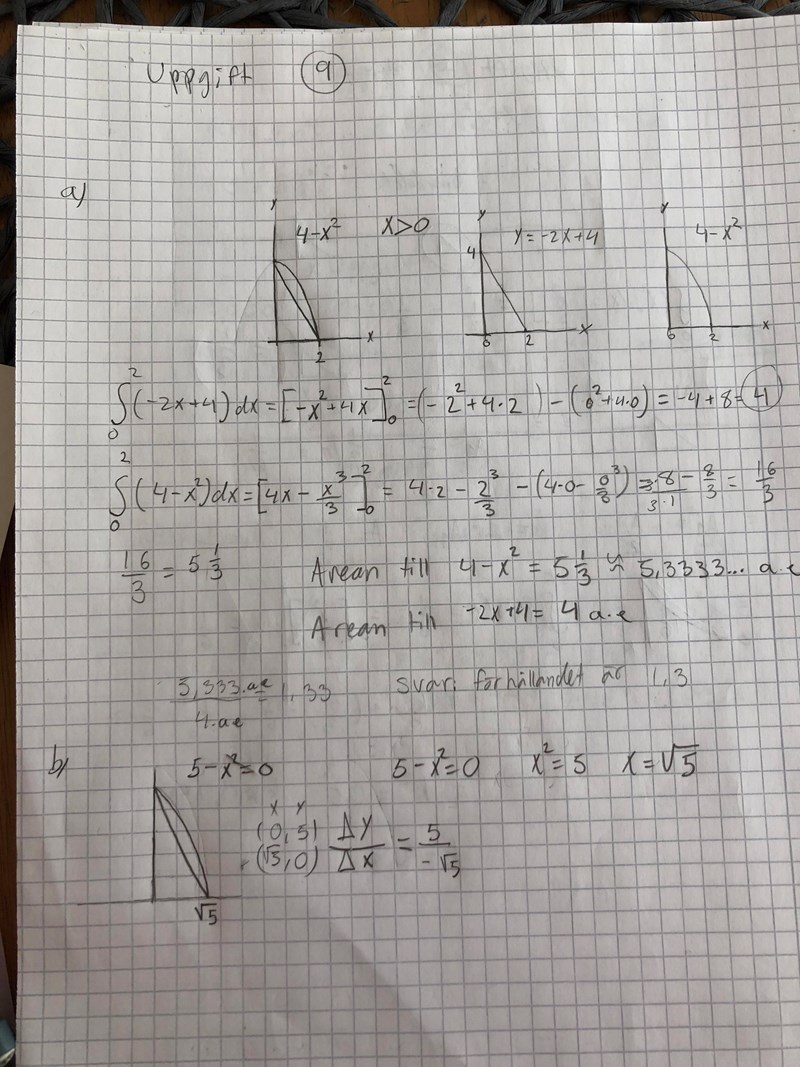 Uppgift 9
a)
y 4-x² x>0 x 2
y 4 y=-2x+4 0 2 x
y 4-x² 0 2 x
∫₀² (-2x+4)dx = [-x²+4x]₀² = (-2²+4·2) - (0²+4·0) = -4+8=4
∫₀² (4-x²)dx = [4x - x³/3]₀² = 4·2 - 2³/3 - (4·0 - 0³/3) = 3·8/3·1 - 8/3 = 16/3
16/3 = 5 1/3 Arean till 4-x² = 5 1/3 ≈ 5,3333... a.e
Arean till -2x+4 = 4 a.e
5,333.ae/4.ae = 1,33 Svar: förhållandet är 1,3
b) 5-x²=0 5-x²=0 x²=5 x=√5
x y
(0,5) Δy/Δx = 5/-√5
(√5,0)
√5